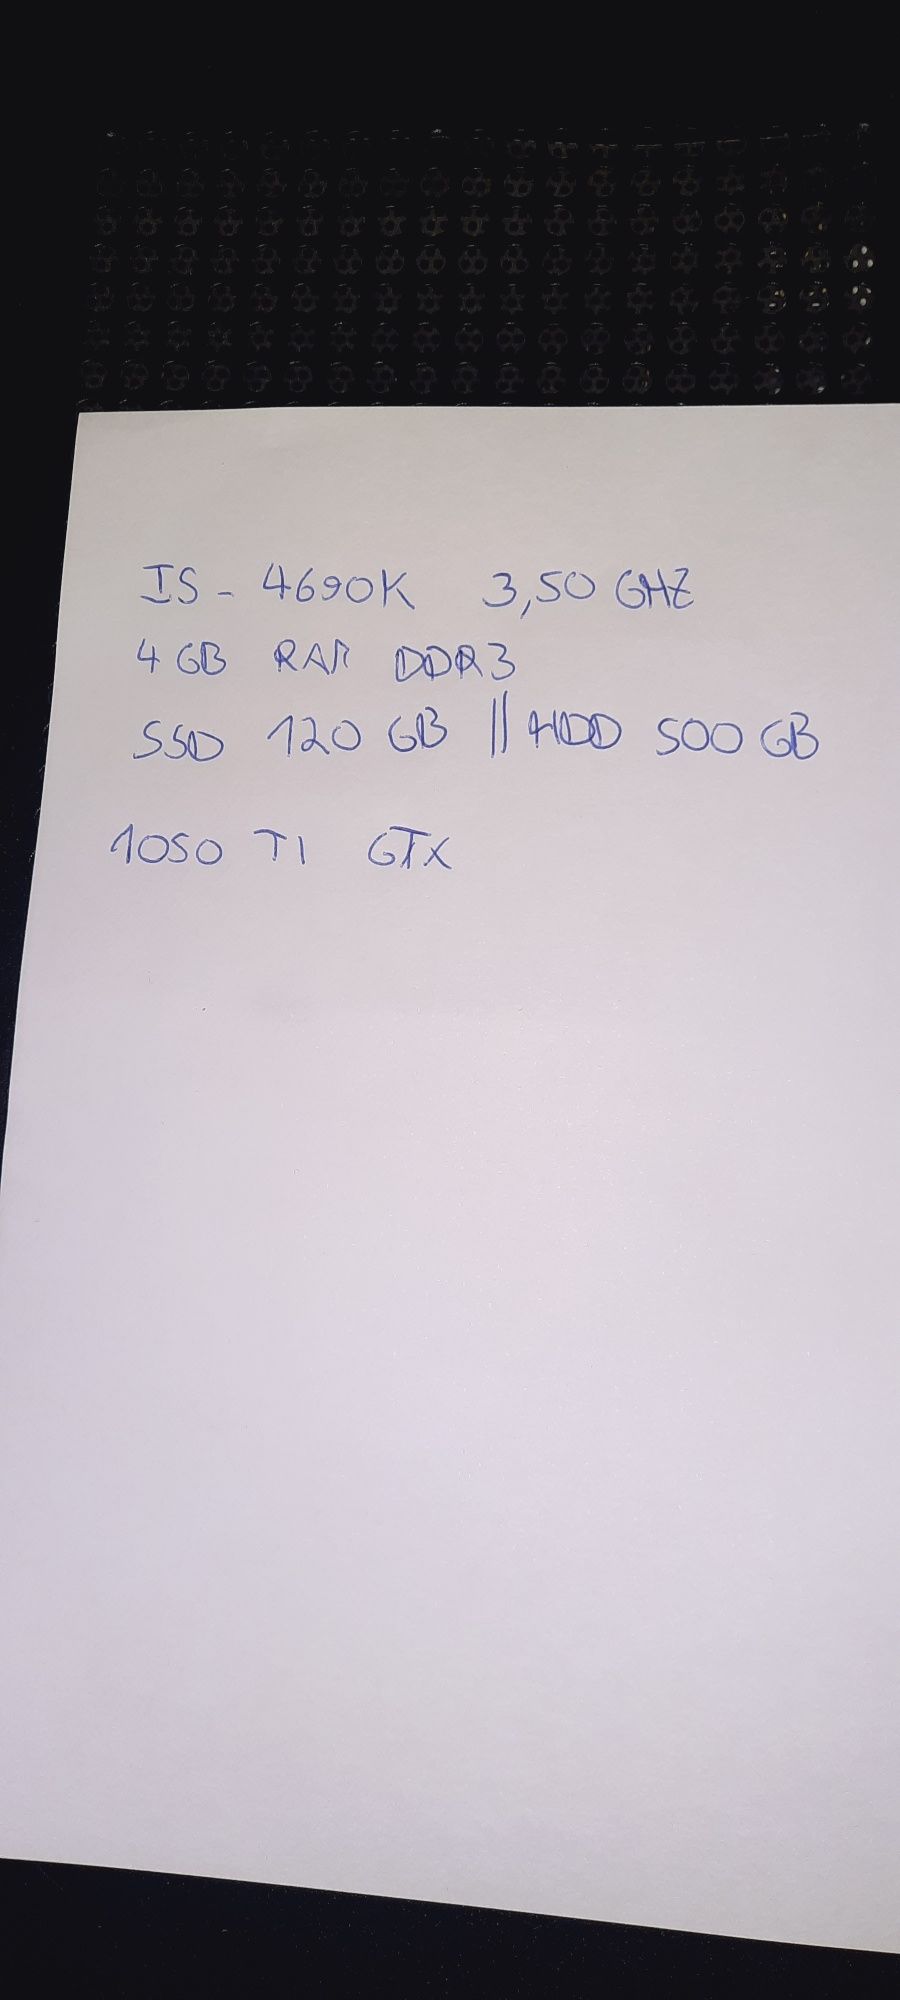 I5 - 4690K 3,50 GHZ
4 GB RAM DDR3
SSD 120 GB || HDD 500 GB
1050 TI GTX